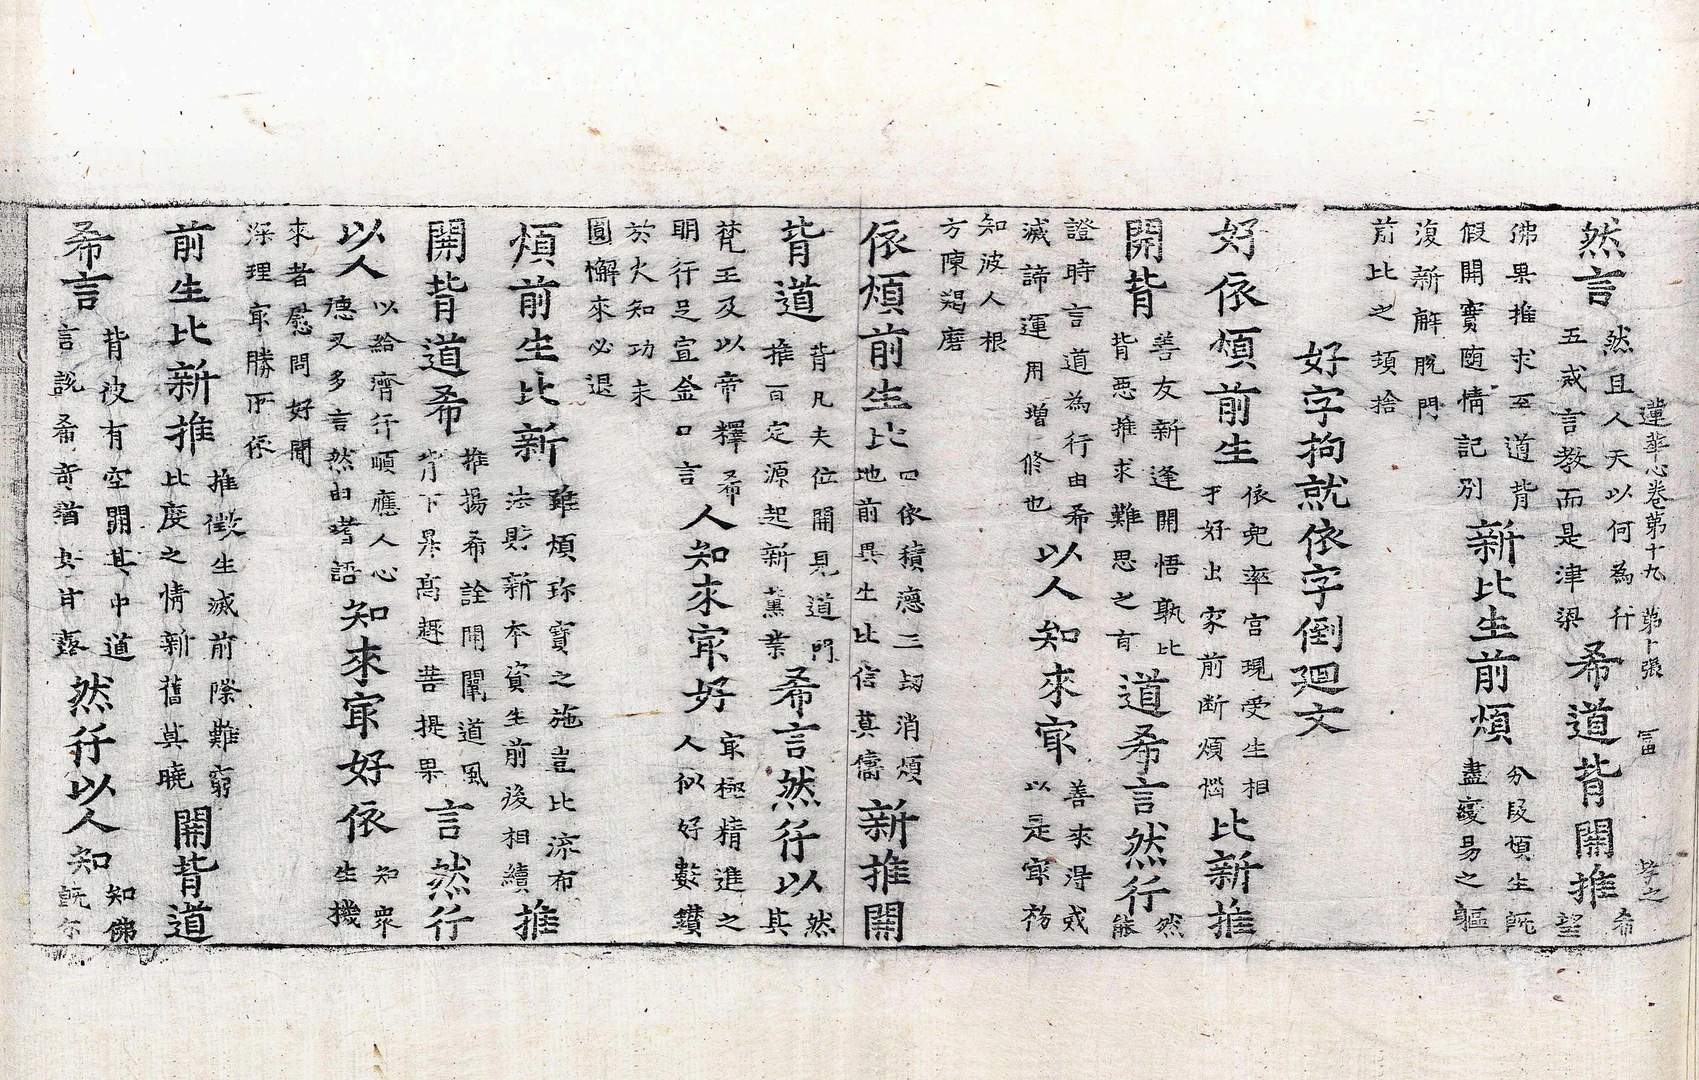 蓮華心卷第十九 第十張
然言
然且人天以何為行
五戒言教而是津梁
希道背開推
希
望
佛果推求至道背
假開實隨情記別
新比生前煩
分段煩生既
盡變易之軀
復新解脫門
前比之須捨
好字拘就依字倒廻文
好依煩前生
依兜率宮現受生相
才好出家前断煩惱
比新推
開背
善友新逢開悟孰比
背惡推求難思之旨
道希言然行
然
能
證時言道為行由希
滅諦運用增修也
以人知來㝡
善來得戒
以是㝡初
知波人根
方陳羯磨
依煩前生比
四依積德三劫消煩
地前異生比信莫儔
新推開
背道
背凡夫位開見道門
推百定源起新薰業
希言然行以
然
其
梵王及以帝釋希
明行足宣金口言
人知來㝡好
㝡極精進之
人似好數鑽
於火知功未
圓懈來必退
煩前生比新
雖煩珎寶之施豈比流布
法財新本資生前後相續
推
開背道希
推揚希詮開闡道風
背下界高趣菩提果
言然行
以人
以給濟行順應人心
德又多言然由考語
知來㝡好依
知衆
生機
來者慰問好聞
深理㝡勝所依
前生比新推
推徵生滅前際難窮
比度之情新舊莫曉
開背道
希言
背彼有空開其中道
言說希奇猶其甘露
然行以人知
知佛
既尔